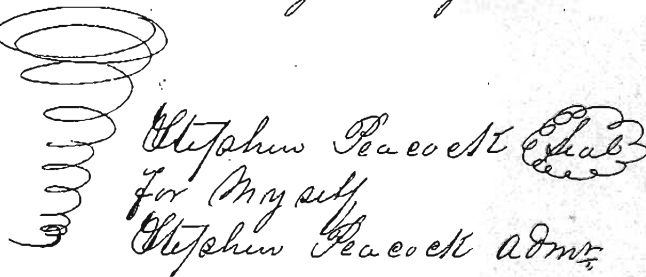 Stephen Peacock Seal
for Myself
Stephen Peacock admr